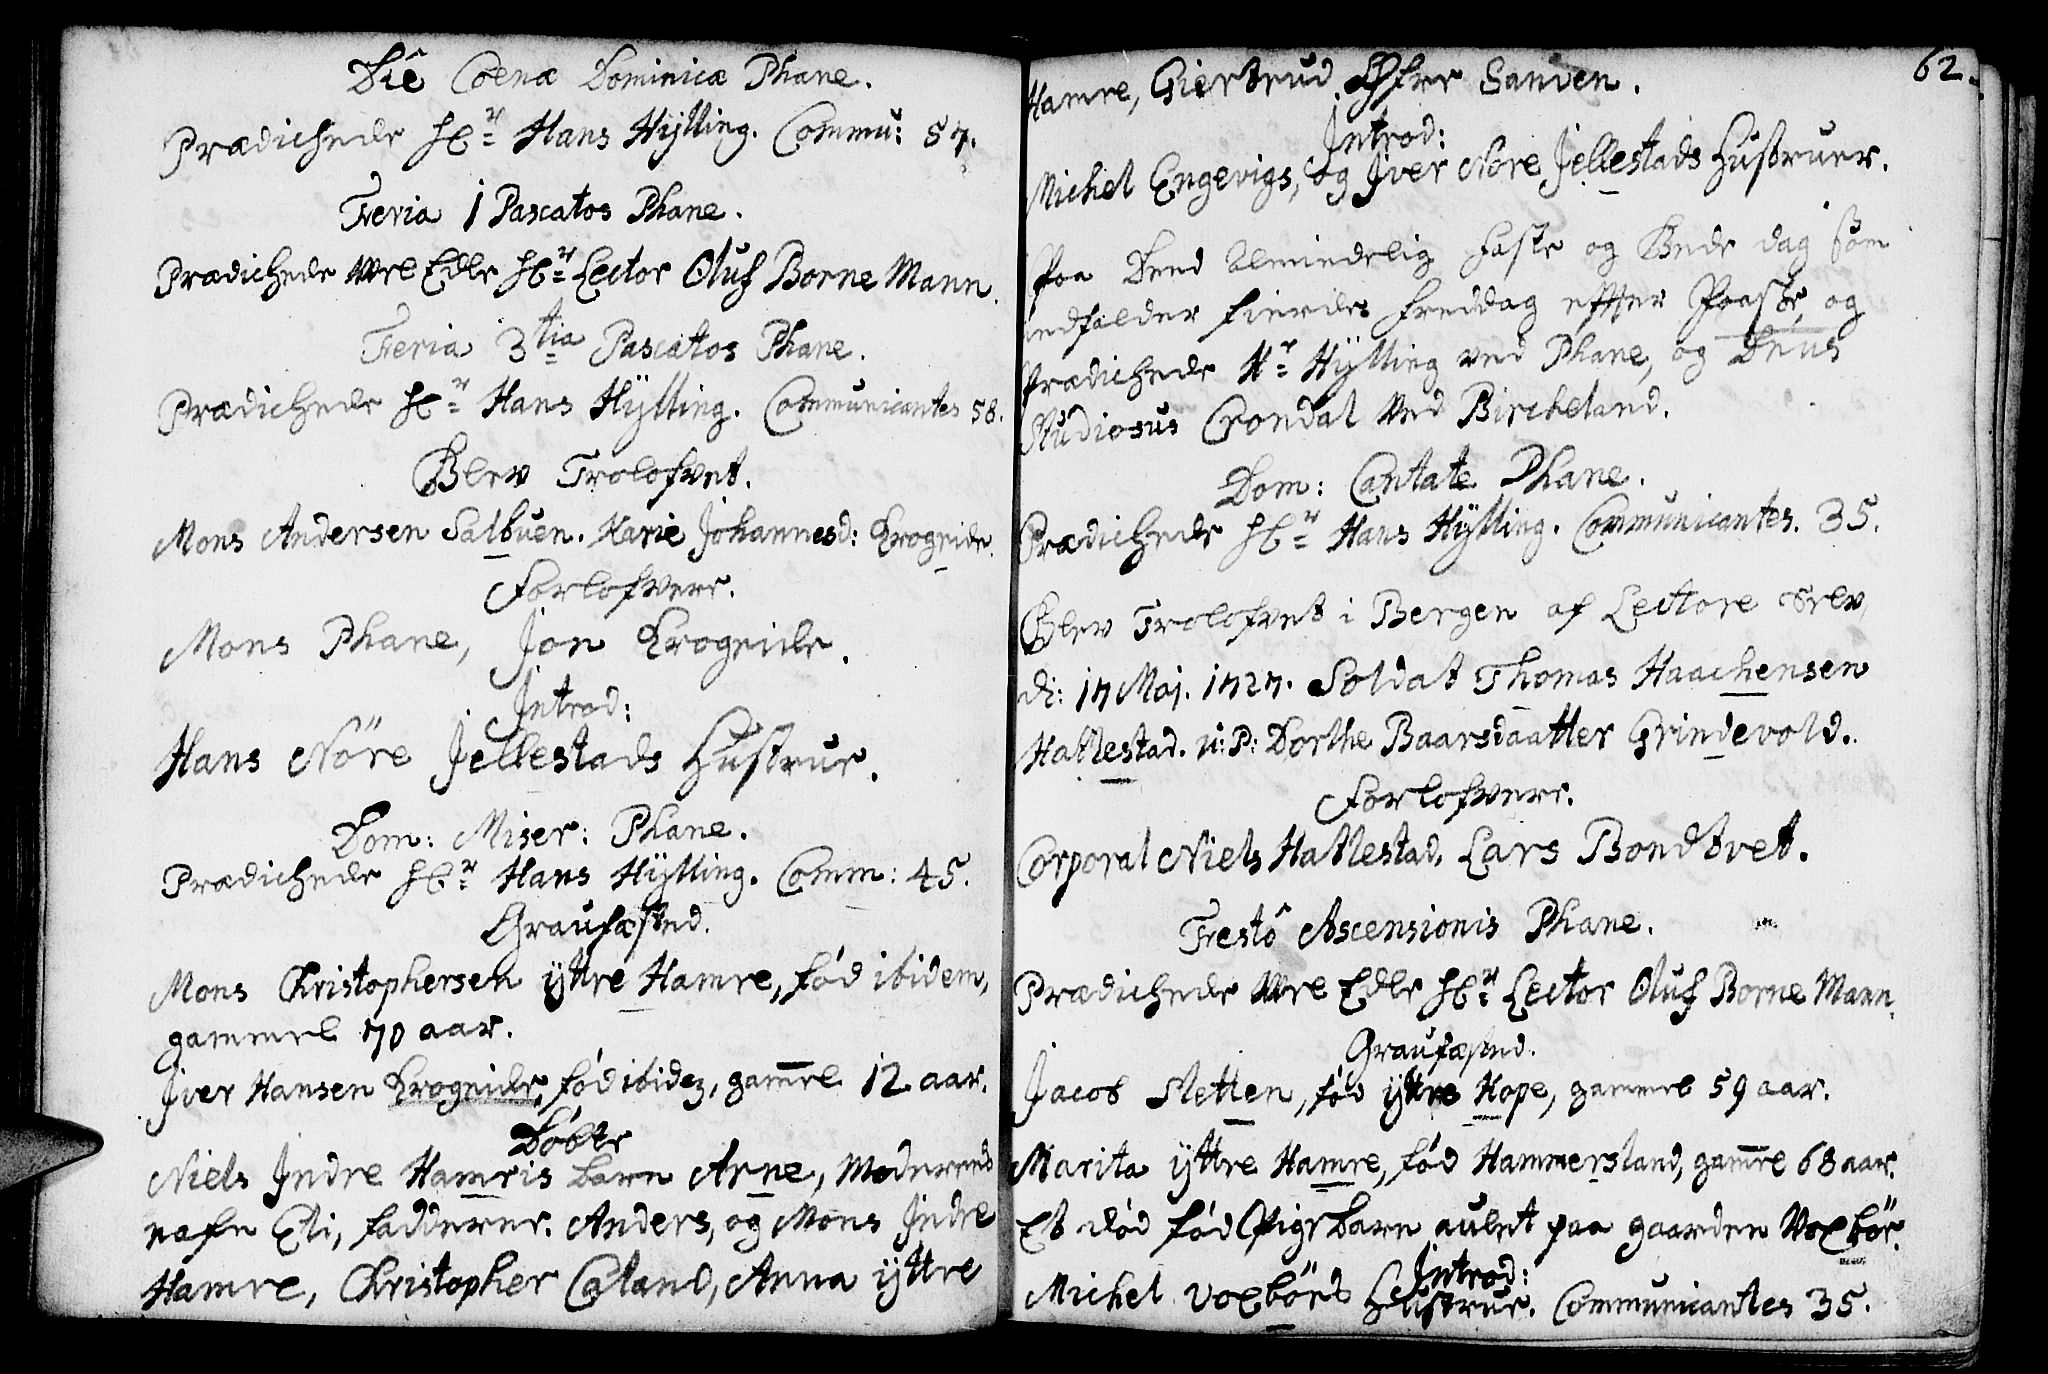 Diê Coenæ Dominicæ Phane.
Prædichede Hr. Hans Hÿlling. Commu: 57.
Feria 1 Pascatos Phane.
Prædichede Vel Edle Hr. Lector Oluf Borne Mann.
Feria 3tia Pascatos Phane.
Prædichede Hr. Hans Hÿlling. Communicantes 58.
Blev Trolofvet.
Mons Andersen Salbuen. Marie Johannesd: Krogeide.
Forlofvere.
Mons Phane, Jon Krogeide.
Introd:
Hans Nöre Jellestads Hustrue.
Dom: Miser: Phane.
Prædichede Hr. Hans Hÿlling. Comm: 45.
Graufæsted.
Mons Christophersen ÿttre Hamre, fød ibidem,
gammel 70 aar.
Jver Hansen Krogeide, fød ibidem, gam̅el 12 aar.
Døbte
Niels Jndre Hamris barn Arne, Moderens
nafn Eli, fadderne. Anders, og Mons Jndre
Hamre, Christopher Caland, Anna ÿttre
62.
Hamre, Giertrud Øfre Sanden.
Introd:
Michel Engevigs, og Jver Nöre Jellestads Hustruer.
Paa Dend Almindelig faste og Bede dag som
indfalder fierde freddag effter Paaske, og
Prædichede Hr. Hÿlling ved Phane, og Dnus
Studiosus Crondal ved Bircheland.
Dom: Cantate Phane.
Prædichede Hr. Hans Hÿlling. Communicantes. 35.
Blev Trolofvet i Bergen af Lectore Trelv,
di: 17 Maj. 1727. Soldat Thomas Haachensen
Hatlestad. u: P: Dorthe Baarsdaatter Grindevold.
Forlofvere.
Corporal Niels Hatlestad, Lars Bondtvet.
Festô Ascensionis Phane.
Prædichede Vel Edle Hr. Lector Oluf Borne Mann.
Graufæsted.
Jacob Sletten, fød ÿttre Hope, gammel 59 aar.
Marita ÿttre Hamre, fød Hammersland, gam̅el 68 aar.
Et død fød Pige barn aulet paa gaarden Voxbör.
Introd:
Michel Voxbörs Hustrue. Communicantes 35.